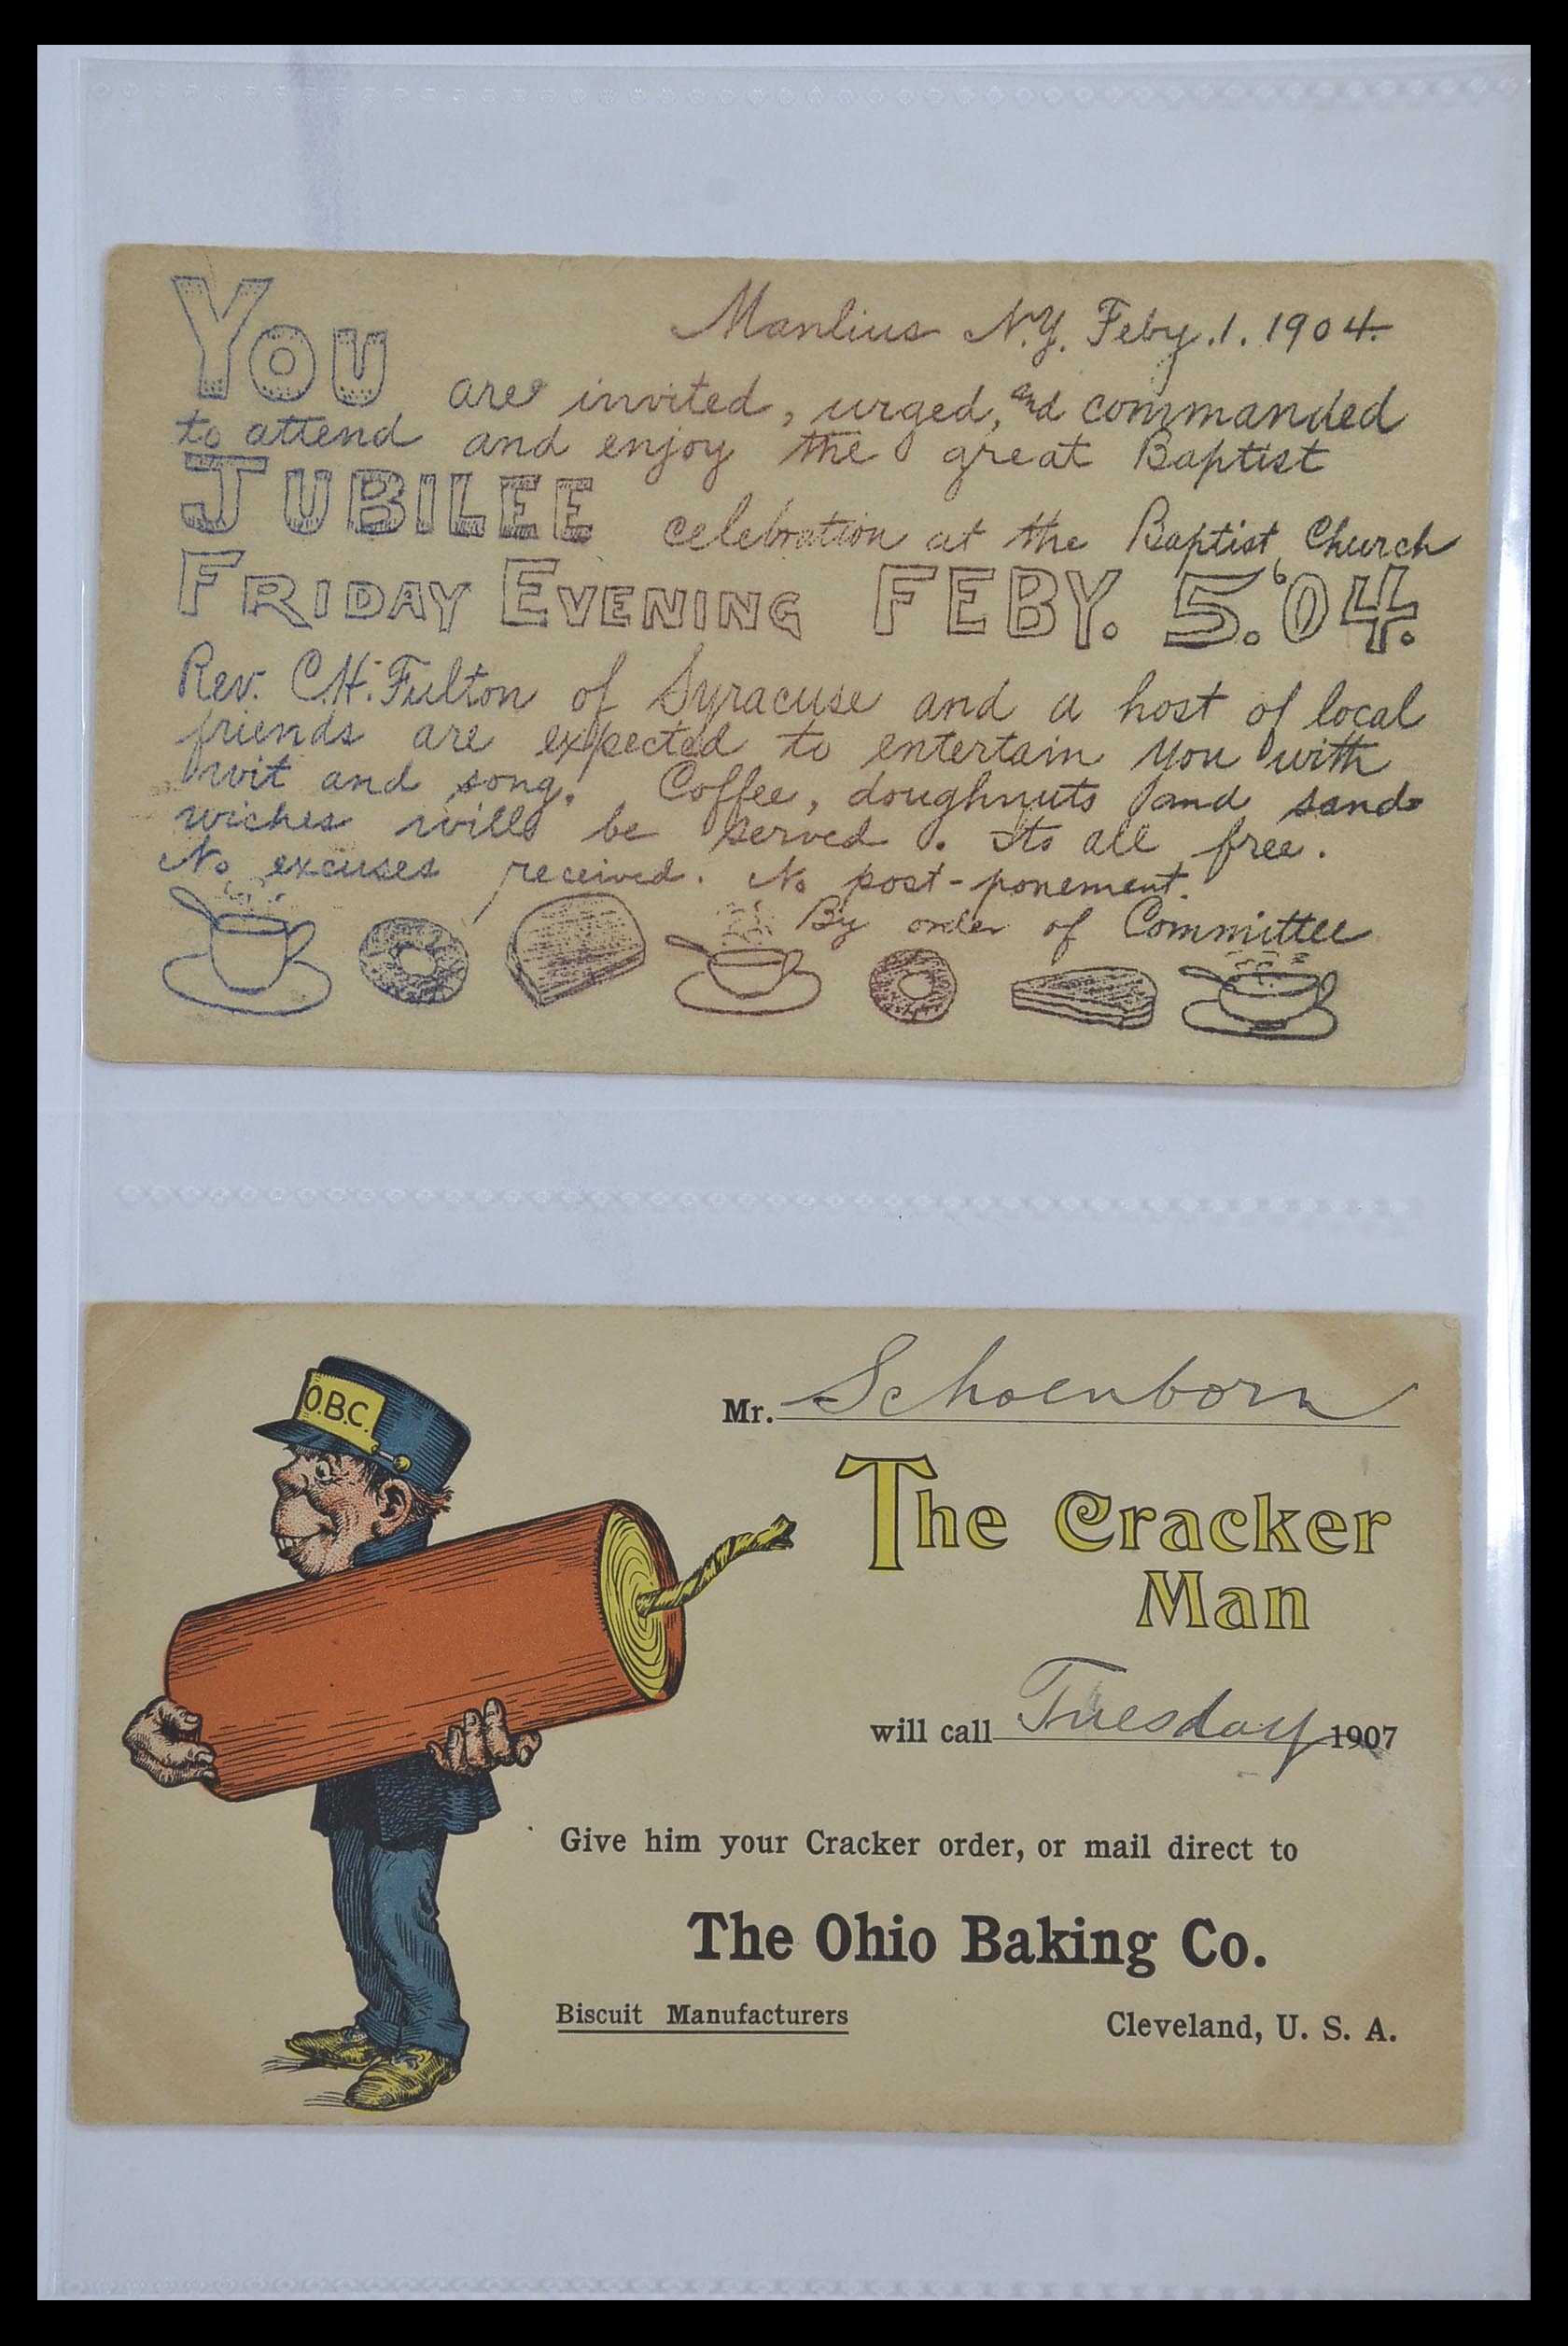 Manlius N.Y. Feby. 1. 1904.
YOU are invited, urged, and commanded
to attend and enjoy the great Baptist
JUBILEE celebration at the Baptist Church
FRIDAY EVENING FEBY. 5. '04.
Rev. C.H. Fulton of Syracuse and a host of local
friends are expected to entertain you with
wit and song. Coffee, doughnuts and sand-
wiches will be served. Its all free.
No excuses received. No post-ponement.
By order of Committee
O.B.C.
Mr. Schoenborn
The Cracker
Man
will call Tuesday 1907
Give him your Cracker order, or mail direct to
The Ohio Baking Co.
Biscuit Manufacturers Cleveland, U. S. A.